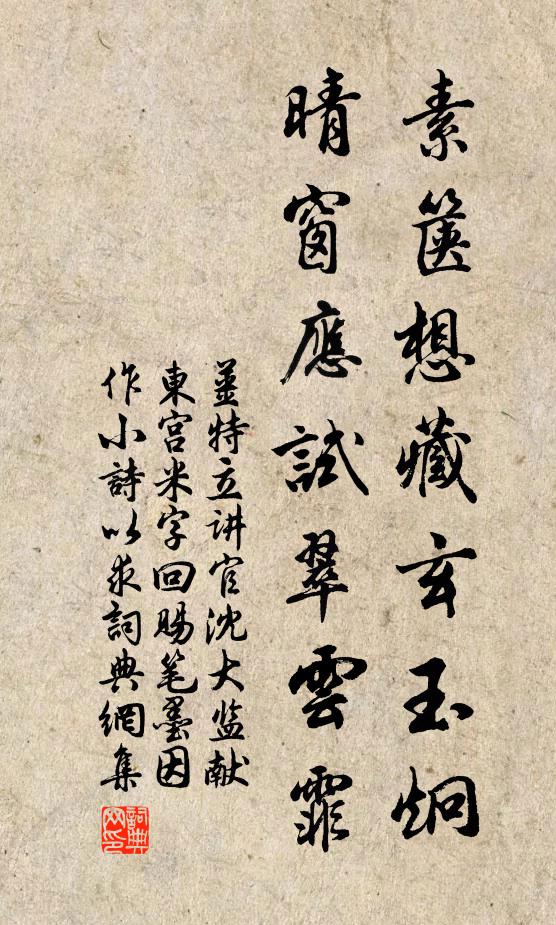 素箧想藏玄玉炯
晴窗應試翠雲霏
姜特立讲官沈大监献
東宫米字回赐笔墨因
作小詩以求詞典網集
詞典网印